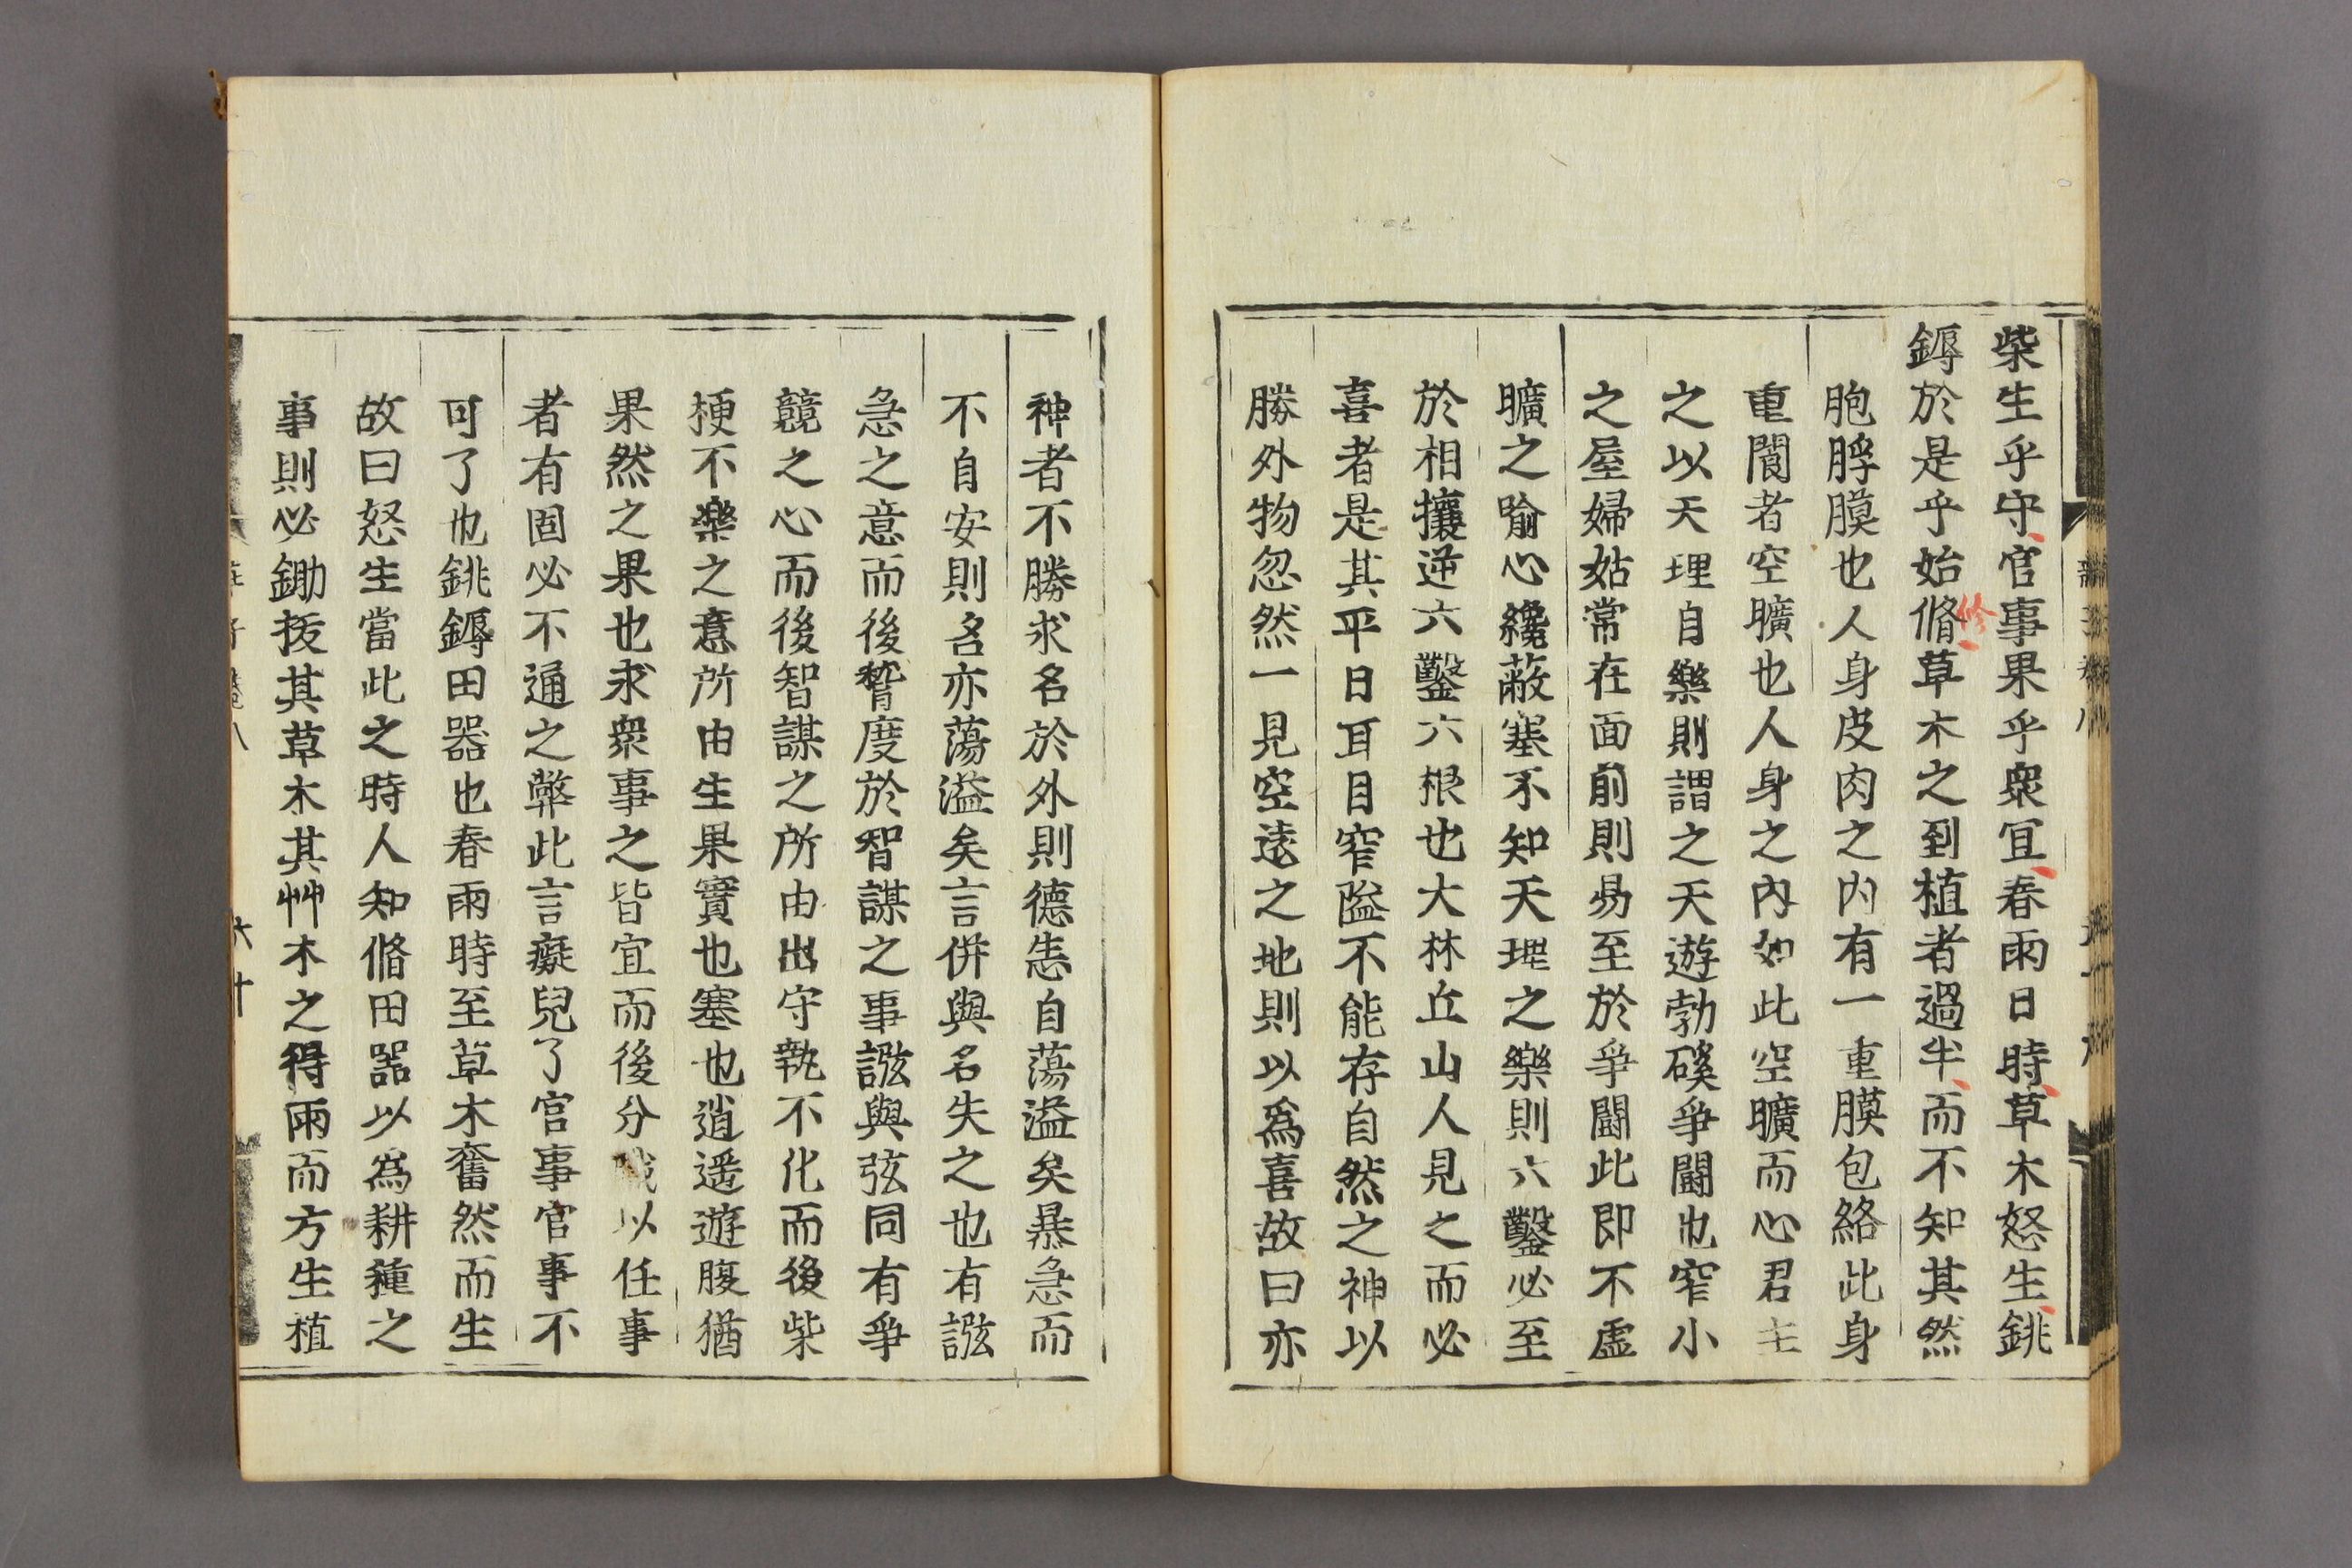 柴生乎守官事果乎衆宜春雨日時草木怒生銚
鎒於是乎始脩草木之到植者過半而不知其然
修
胞脬膜也人身皮肉之內有一重膜包絡此身
重閬者空曠也人身之內如此空曠而心君主
之以天理自樂則謂之天遊勃磎爭鬪也窄小
之屋婦姑常在面前則易至於爭鬪此即不虛
曠之喻心纔蔽塞不知天理之樂則六鑿必至
於相攘逆六鑿六根也大林丘山人見之而必
喜者是其平日耳目窄隘不能存自然之神以
勝外物忽然一見空遠之地則以爲喜故曰亦
神者不勝求名於外則德恚自蕩溢矣暴急而
不自安則名亦蕩溢矣言併與名失之也有誸
急之意而後稽度於智謀之事誸與弦同有爭
競之心而後智謀之所由出守執不化而後柴
梗不樂之意所由生果實也塞也逍遥遊腹猶
果然之果也求衆事之皆宜而後分職以任事
者有固必不通之弊此言癡兒了官事官事不
可了也銚鎒田器也春雨時至草木奮然而生
故曰怒生當此之時人知脩田器以爲耕種之
事則必鋤拔其草木其艸木之得雨而方生植
莊子卷八
六十